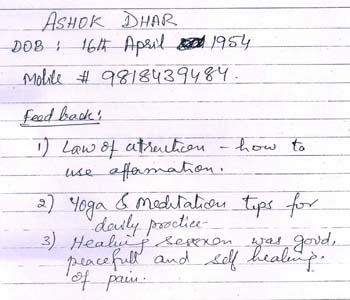 ASHOK DHAR
DOB : 16th April 1954
Mobile # 9818439484.
Feed back :
1) Law of attraction - how to
use affarmation.
2) Yoga & Meditation tips for
daily practice
3) Healing session was good,
peacefull and self healing.
of pain.